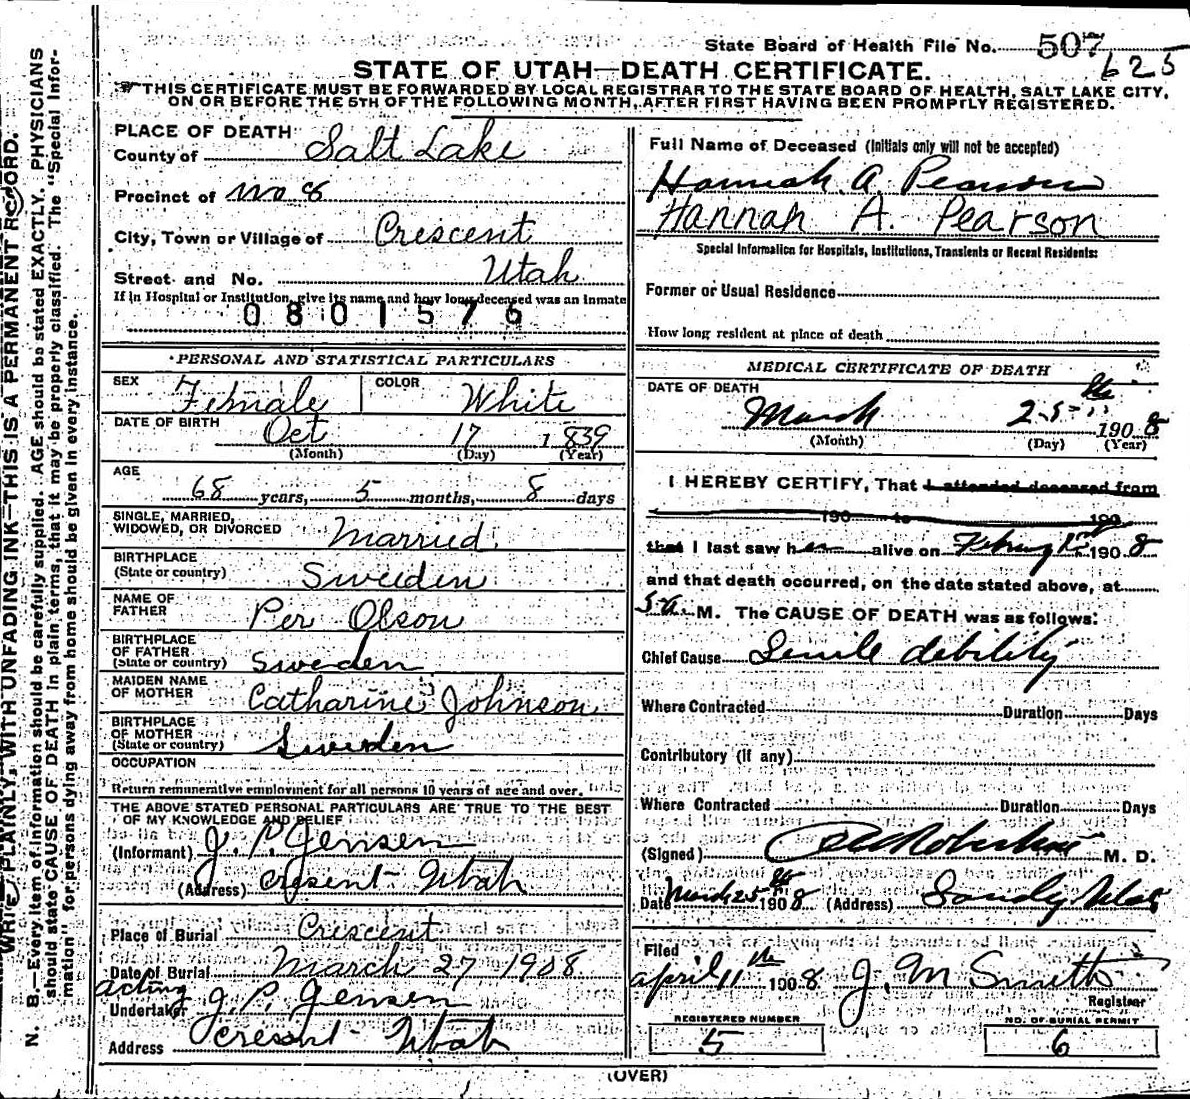 State Board of Health File No. 507
625
STATE OF UTAH—DEATH CERTIFICATE.
THIS CERTIFICATE MUST BE FORWARDED BY LOCAL REGISTRAR TO THE STATE BOARD OF HEALTH, SALT LAKE CITY,
ON OR BEFORE THE 5TH OF THE FOLLOWING MONTH, AFTER FIRST HAVING BEEN PROMPTLY REGISTERED.
N. B.—Every item of information should be carefully supplied. AGE should be stated EXACTLY. PHYSICIANS
should state CAUSE OF DEATH in plain terms, that it may be properly classified. The "Special Infor-
mation" for persons dying away from home should be given in every instance.
WRITE PLAINLY, WITH UNFADING INK—THIS IS A PERMANENT RECORD.
PLACE OF DEATH
County of Salt Lake
Precinct of No 8
City, Town or Village of Crescent
Street and No. Utah
If in Hospital or Institution, give its name and how long deceased was an inmate
0801576
PERSONAL AND STATISTICAL PARTICULARS
SEX Female COLOR White
DATE OF BIRTH Oct 17 1839
(Month) (Day) (Year)
AGE
68 years, 5 months, 8 days
SINGLE, MARRIED,
WIDOWED, OR DIVORCED Married
BIRTHPLACE
(State or country) Sweden
NAME OF
FATHER Per Olson
BIRTHPLACE
OF FATHER
(State or country) Sweden
MAIDEN NAME
OF MOTHER Catharine Johnson
BIRTHPLACE
OF MOTHER
(State or country) Sweden
OCCUPATION
Return remunerative employment for all persons 10 years of age and over.
THE ABOVE STATED PERSONAL PARTICULARS ARE TRUE TO THE BEST
OF MY KNOWLEDGE AND BELIEF
(Informant) J. P. Jensen
(Address) Cresent Utah
Place of Burial Crescent
Date of Burial March 27 1908
acting
Undertaker J. P. Jensen
Address Cressnt Utah
Full Name of Deceased (Initials only will not be accepted)
Hannah A. Pearson
Hannah A. Pearson
Special Information for Hospitals, Institutions, Transients or Recent Residents:
Former or Usual Residence
How long resident at place of death
MEDICAL CERTIFICATE OF DEATH
DATE OF DEATH
March 25th 1908
(Month) (Day) (Year)
I HEREBY CERTIFY, That I attended deceased from
190 to 190
that I last saw her alive on 1908
and that death occurred, on the date stated above, at
5 a. M. The CAUSE OF DEATH was as follows:
Chief Cause Senile debility
Where Contracted Duration Days
Contributory (if any)
Where Contracted Duration Days
(Signed) Robertson M. D.
Date March 25th 1908 (Address) Sandy Utah
Filed
April 11th 1908 J. M Smith
Registrar
REGISTERED NUMBER
5
NO. OF BURIAL PERMIT
6
(OVER)